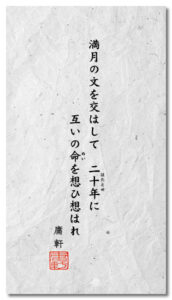 満月の文を交はして 二十年に
互いの命を想ひ想はれ
庸軒